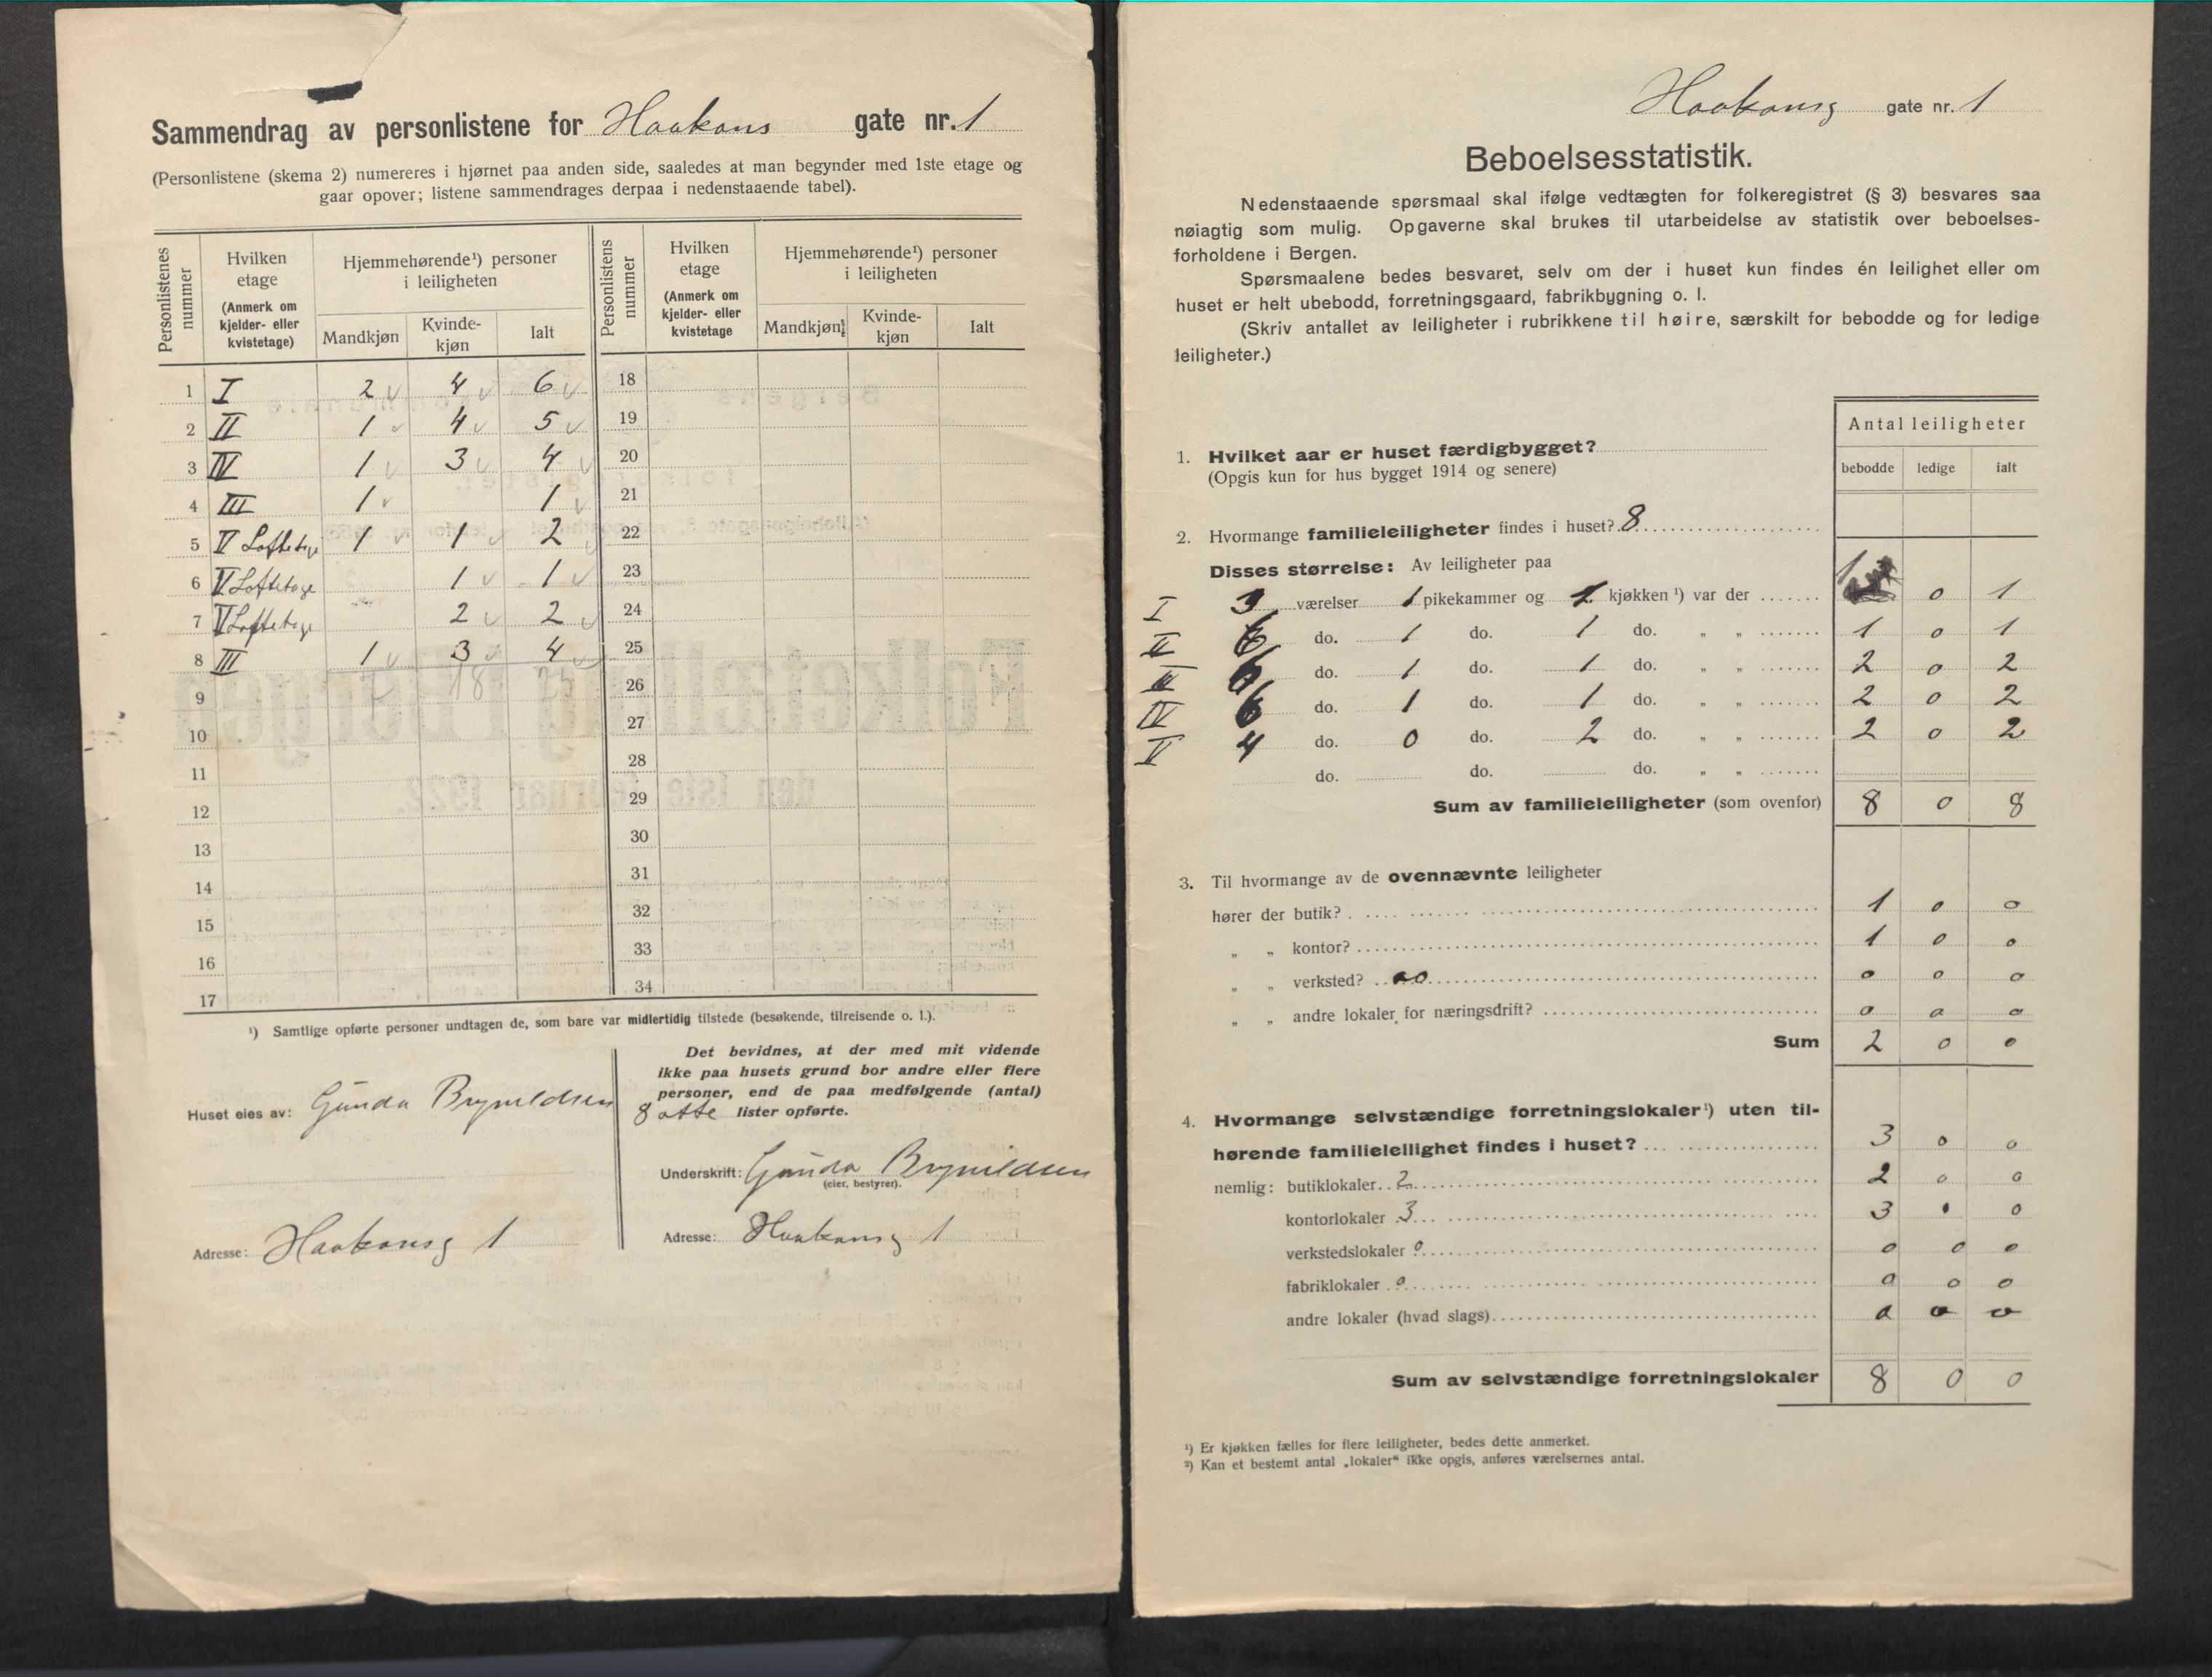 Sammendrag av personlistene for Haakons gate nr. 1
(Personlistene (skema 2) numereres i hjørnet paa anden side, saaledes at man begynder med 1ste etage og
gaar opover; listene sammendrages derpaa i nedenstaaende tabel).
Personlistenes nummer
Hvilken etage (Anmerk om kjelder- eller kvistetage)
Hjemmehørende¹) personer i leiligheten
Mandkjøn Kvinde-kjøn Ialt
Personlistens nummer
Hvilken etage (Anmerk om kjelder- eller kvistetage
Hjemmehørende¹) personer i leiligheten
Mandkjøn Kvinde-kjøn Ialt
1 I 2 4 6
2 II 1 4 5
3 IV 1 3 4
4 III 1 1
5 V Loftetage 1 1 2
6 V Loftetage 1 1
7 V Loftetage 2 2
8 III 1 3 4
9 7 18 25
10
11
12
13
14
15
16
17
18
19
20
21
22
23
24
25
26
27
28
29
30
31
32
33
34
¹) Samtlige opførte personer undtagen de, som bare var midlertidig tilstede (besøkende, tilreisende o. l.).
Huset eies av: Gunda Brynildsen
Adresse: Haakonsg 1
Det bevidnes, at der med mit vidende
ikke paa husets grund bor andre eller flere
personer, end de paa medfølgende (antal)
8 otte lister opførte.
Underskrift: Gunda Brynildsen
(eier, bestyrer).
Adresse: Haakonsg 1
Haakonsg gate nr. 1
Beboelsesstatistik.
Nedenstaaende spørsmaal skal ifølge vedtægten for folkeregistret (§ 3) besvares saa
nøiagtig som mulig. Opgaverne skal brukes til utarbeidelse av statistik over beboelses-
forholdene i Bergen.
Spørsmaalene bedes besvaret, selv om der i huset kun findes én leilighet eller om
huset er helt ubebodd, forretningsgaard, fabrikbygning o. l.
(Skriv antallet av leiligheter i rubrikkene til høire, særskilt for bebodde og for ledige
leiligheter.)
Antal leiligheter
bebodde ledige ialt
1. Hvilket aar er huset færdigbygget?
(Opgis kun for hus bygget 1914 og senere)
2. Hvormange familieleiligheter findes i huset? 8
Disses størrelse: Av leiligheter paa
I 3 værelser 1 pikekammer og 1 kjøkken ¹) var der 1 0 1
II 6 do. 1 do. 1 do. „ „ 1 0 1
III 6 do. 1 do. 1 do. „ „ 2 0 2
IV 6 do. 1 do. 1 do. „ „ 2 0 2
V 4 do. 0 do. 2 do. „ „ 2 0 2
do. do. do. „ „
Sum av familieleiligheter (som ovenfor) 8 0 8
3. Til hvormange av de ovennævnte leiligheter
hører der butik? 1 0 0
„ „ kontor? 1 0 0
„ „ verksted? 0 0 0
„ „ andre lokaler for næringsdrift? 0 0 0
Sum 2 0 0
4. Hvormange selvstændige forretningslokaler¹) uten til-
hørende familieleilighet findes i huset? 3 0 0
nemlig: butiklokaler 2 2 0 0
kontorlokaler 3 3 0 0
verkstedslokaler 0 0 0 0
fabriklokaler 0 0 0 0
andre lokaler (hvad slags) 0 0 0
Sum av selvstændige forretningslokaler 8 0 0
¹) Er kjøkken fælles for flere leiligheter, bedes dette anmerket.
²) Kan et bestemt antal „lokaler“ ikke opgis, anføres værelsernes antal.